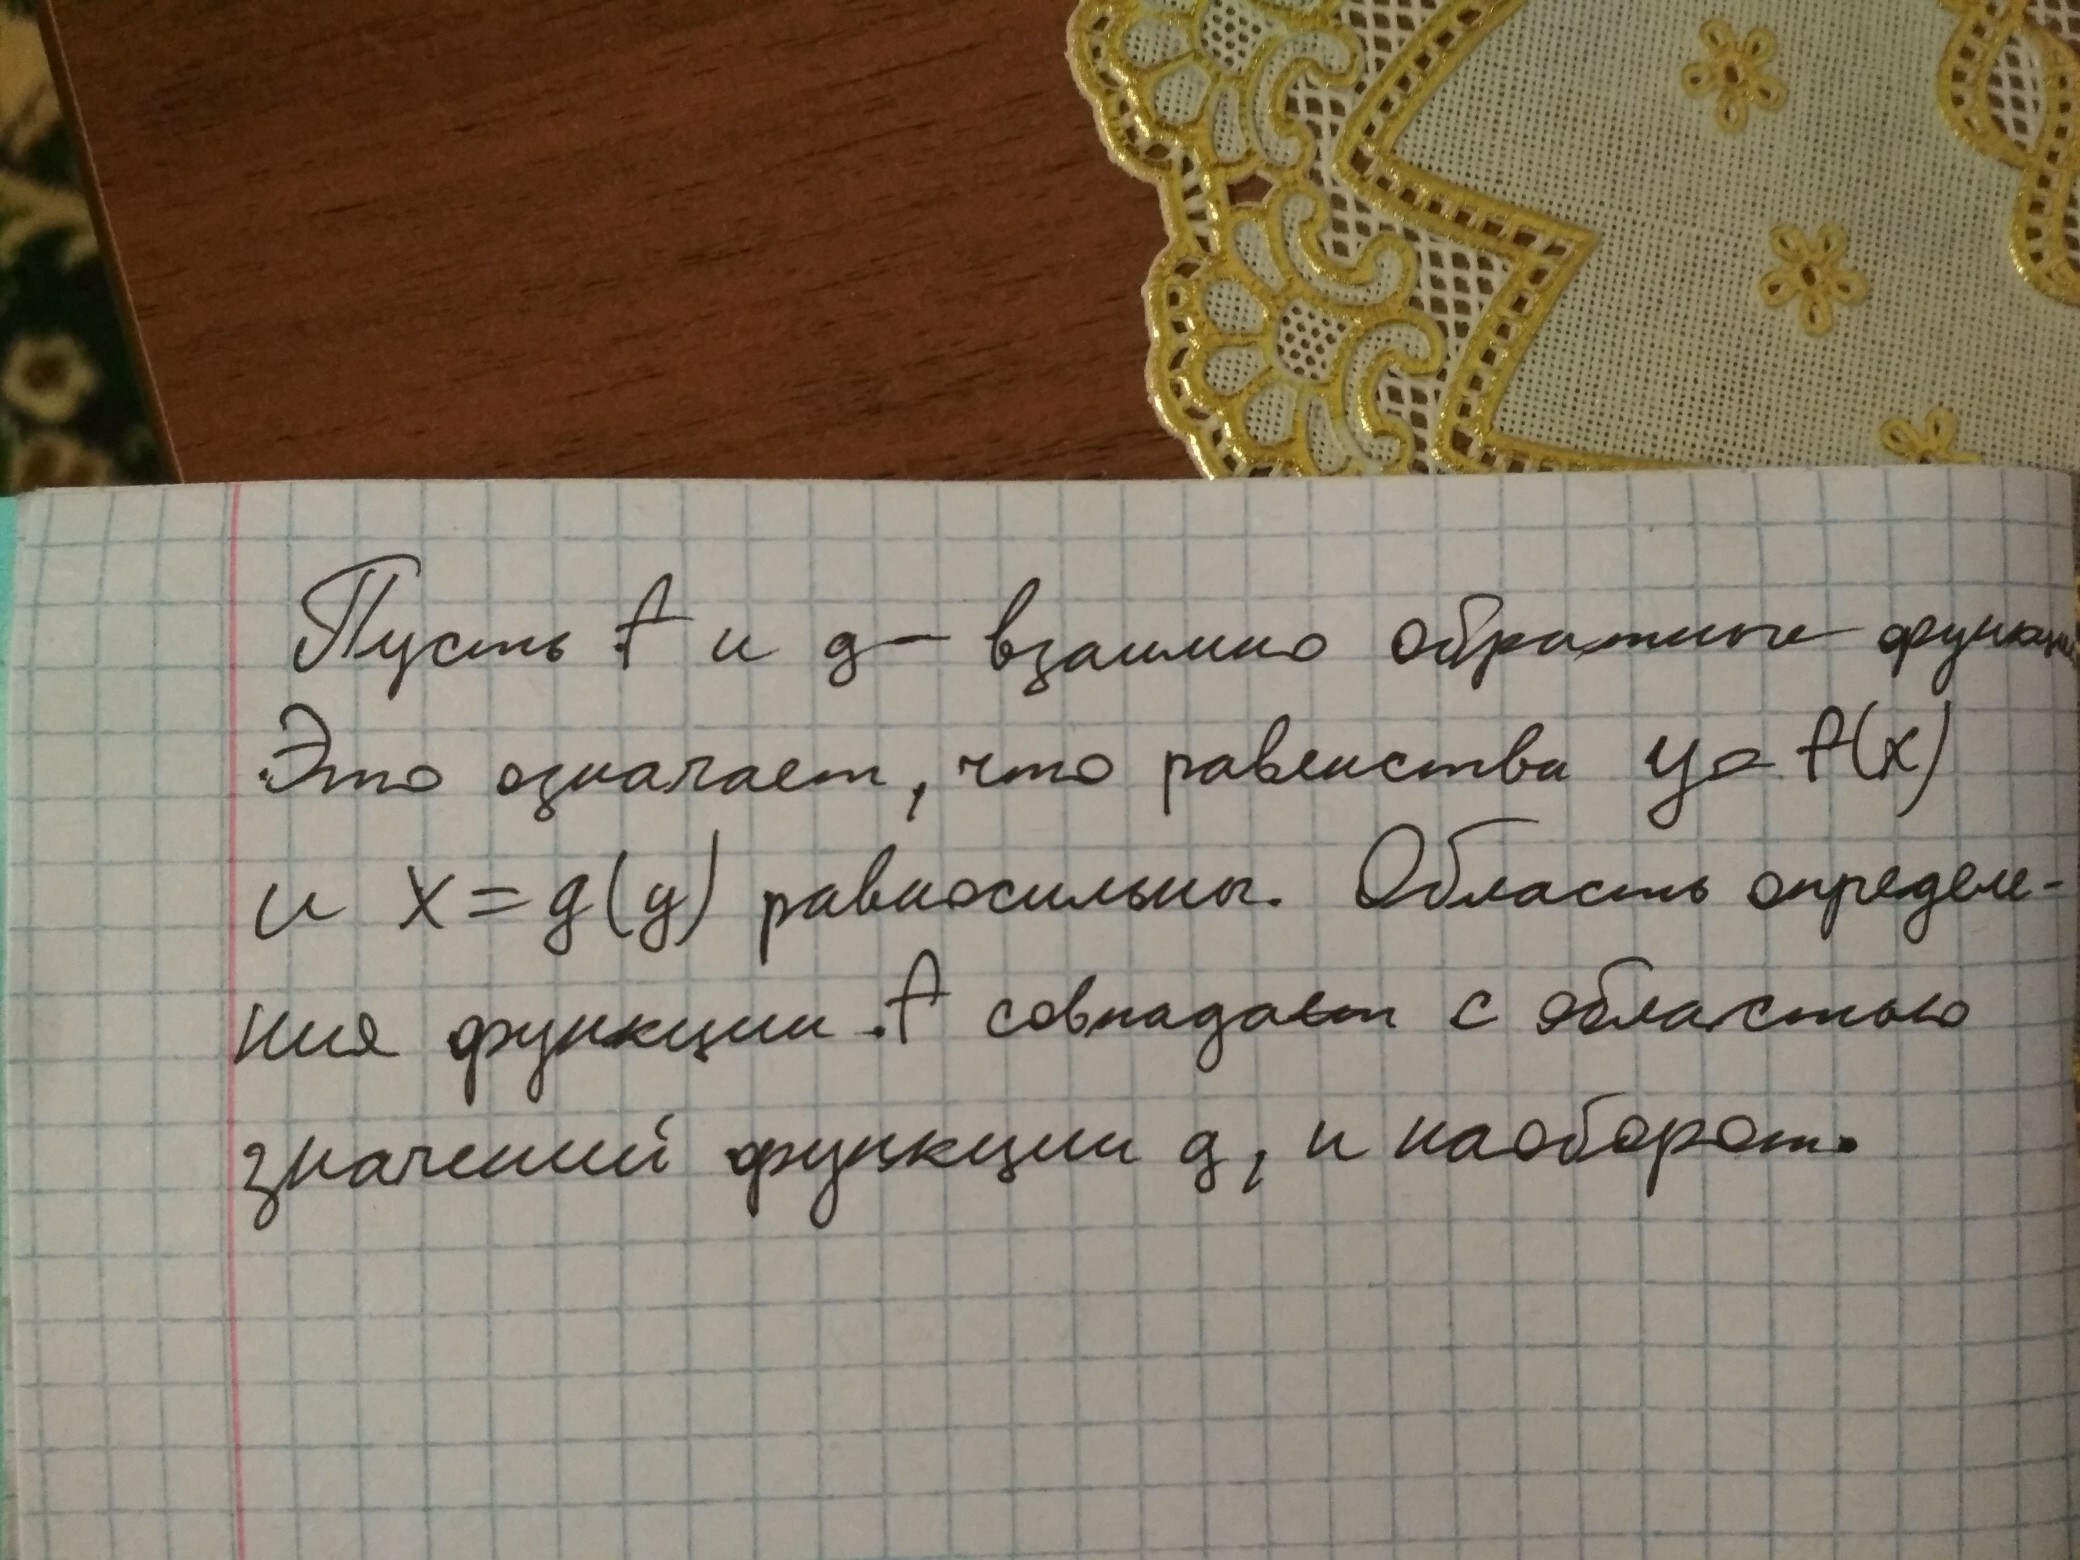 Пусть f и g – взаимно обратные функции
Это означает, что равенства y = f(x)
и x = g(y) равносильны. Область определе-
ния функции f совпадает с областью
значений функции g, и наоборот.